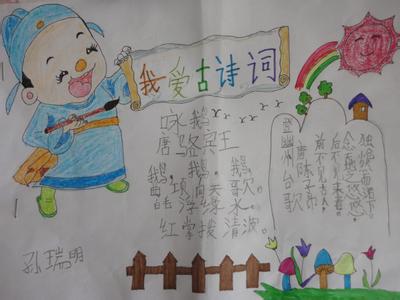 我爱古诗词
咏鹅
唐骆宾王
鹅.鹅.鹅
曲项向天歌。
白毛浮绿水。
红掌拨清波。
登幽州台歌
唐陈子昂
前不见古人
后不见来者
念天地之悠悠
独怆然而涕下
孙瑞明